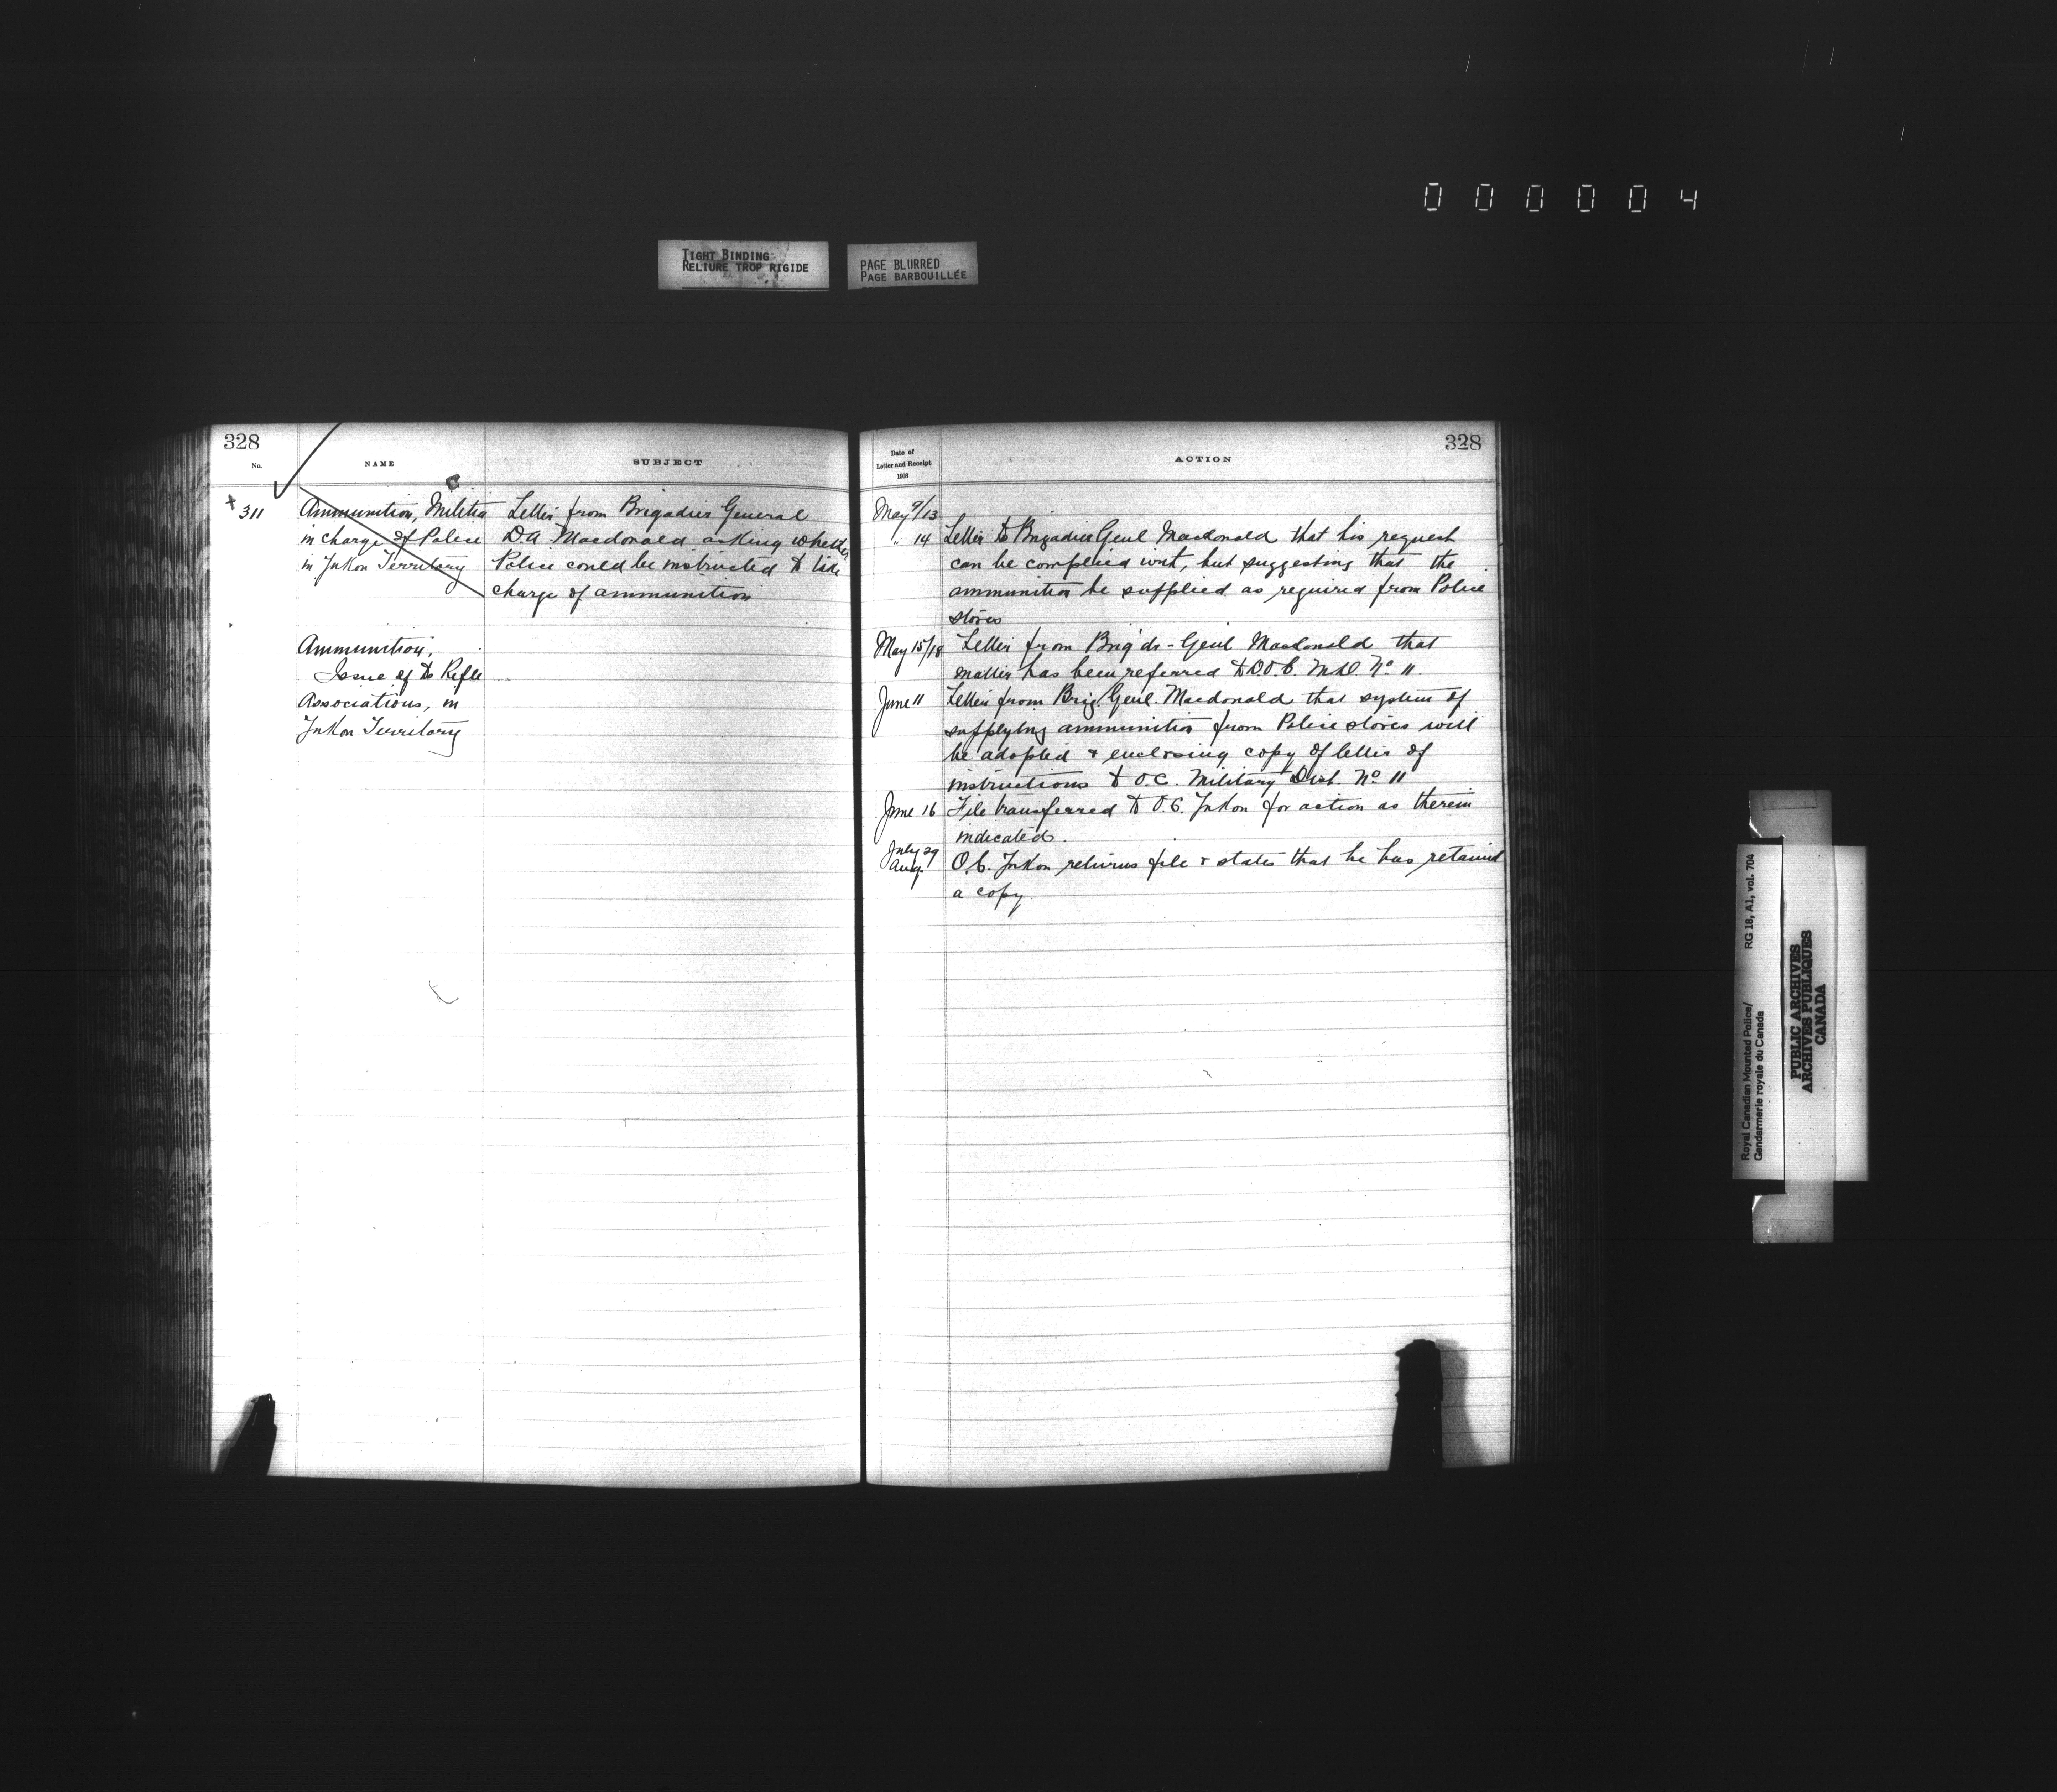 000004
TIGHT BINDING
RELIURE TROP RIGIDE
PAGE BLURRED
PAGE BARBOUILLÉE
328
No.
NAME
SUBJECT
+ 311
Ammunition, Militia
in charge of Police
in Yukon Territory
Letter from Brigadier General
D.A. Macdonald asking whether
Police could be instructed to take
charge of ammunition
Ammunition,
Issue of to Rifle
Associations, in
Yukon Territory
Date of
Letter and Receipt
1908
ACTION
328
May 9/13
" 14 Letter to Brigadier Genl Macdonald that his request
can be complied with, but suggesting that the
ammunition be supplied as required from Police
stores
May 15/18 Letter from Brig'dr-Genl Macdonald that
matter has been referred to D.O.C. M.D. No 11.
June 11 Letter from Brig. Genl. Macdonald that system of
supplying ammunition from Police stores will
be adopted & enclosing copy of letter of
instructions to O.C. Military Dist. No 11
June 16 File transferred to O.C. Yukon for action as therein
indicated.
July 29
Aug. O.C. Yukon returns file & states that he has retained
a copy
Royal Canadian Mounted Police/
Gendarmerie royale du Canada
RG 18, A1, vol. 704
PUBLIC ARCHIVES
ARCHIVES PUBLIQUES
CANADA